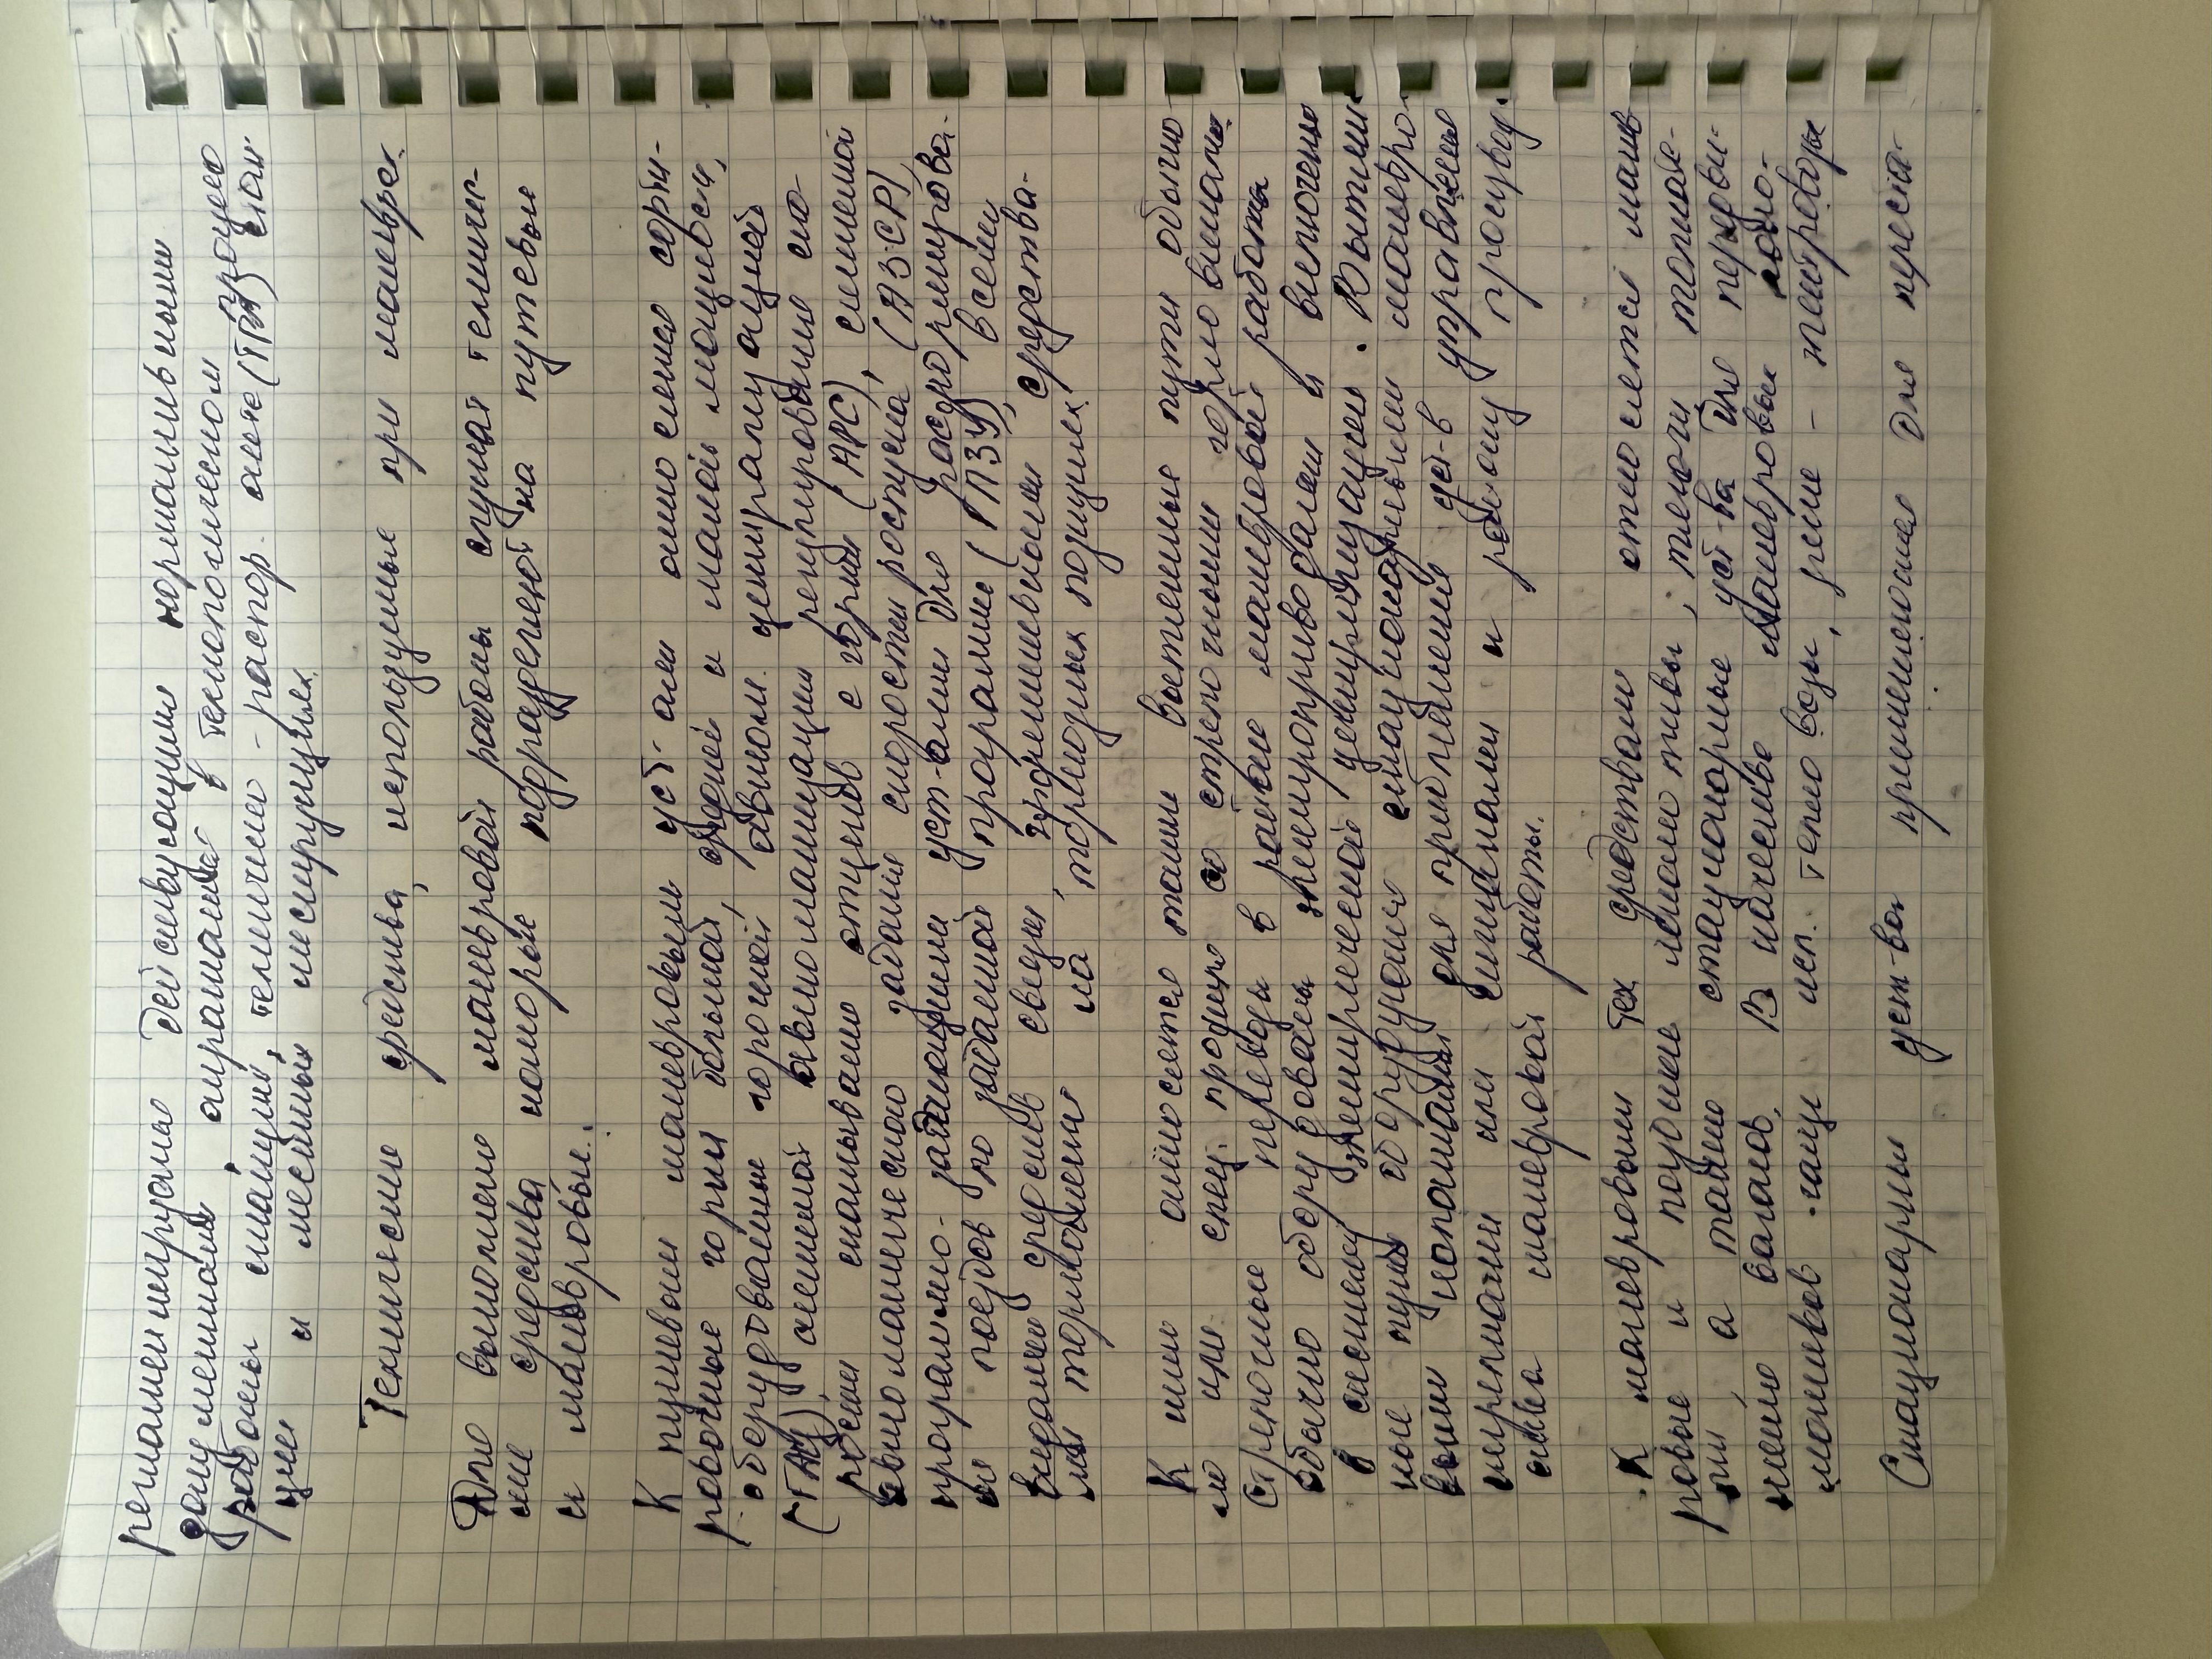 регламентируется действующими нормативными
документами, отражается в технологическом процессе
работы станции, технико-распор. акте (ТРА) стан
ции и местных инструкциях.
Технические средства, используемые при маневрах.
Для выполнения маневровой работы служат техничес-
кие средства которые подразделяют на путевые
и маневровые.
К путевым маневровым уст-ам относятся сорти-
ровочные горки большой, средней и малой мощности,
оборудованные горочной автомат. централизацией
(ГАЦ), системой автоматизации регулирования ско-
рости скатывания отцепов с горки (АРС), системой
автоматического задания скорости роспуска (АЗСР),
программно-задающими уст-вами для расформирова-
ния поездов по заданной программе (ПЗУ), всеми
видами средств связи, горочными средства-
ми торможения на тормозных позициях.
К ним относятся также вытяжные пути обычно-
го или спец. профиля со стрелочными горловинами.
Стрелочные переводы в районе маневровой работы
обычно оборудованы электроприводами и включены
в систему электрической централизации. Вытяж-
ные пути оборудованы стационарными маневро-
выми колонками для управления уст-в
сигналами и радиосвязью
работы.
К маневровым тех средствам относятся манев
ровые и поездные локомотивы, тягачи, толкате-
ли, а также стационарные уст-ва для передви-
жения вагонов. В качестве маневровых локо-
мотивов чаще исп. тепловозы, реже - электровозы
Стационарные уст-ва применяемые для переста-